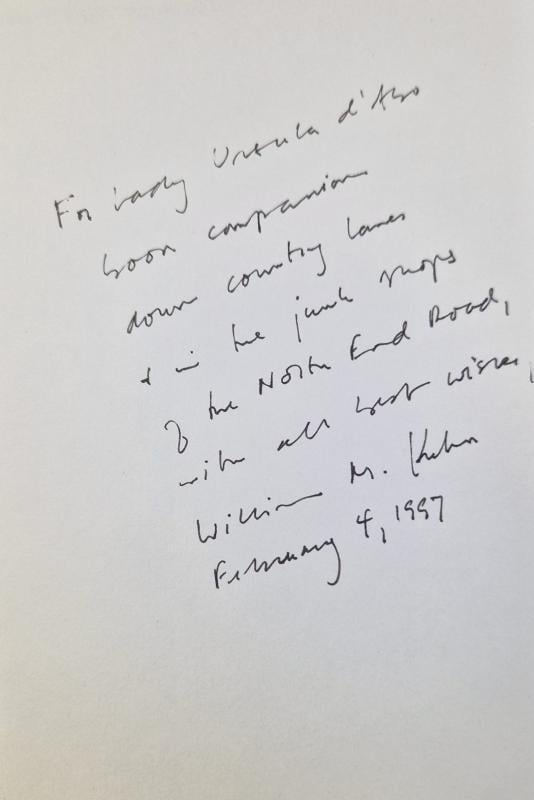 For Lady Ursula d'Abo
boon companion
down country lanes
& in the junk shops
of the North End Road,
with all best wishes,
William M. Kuhn
February 4, 1997